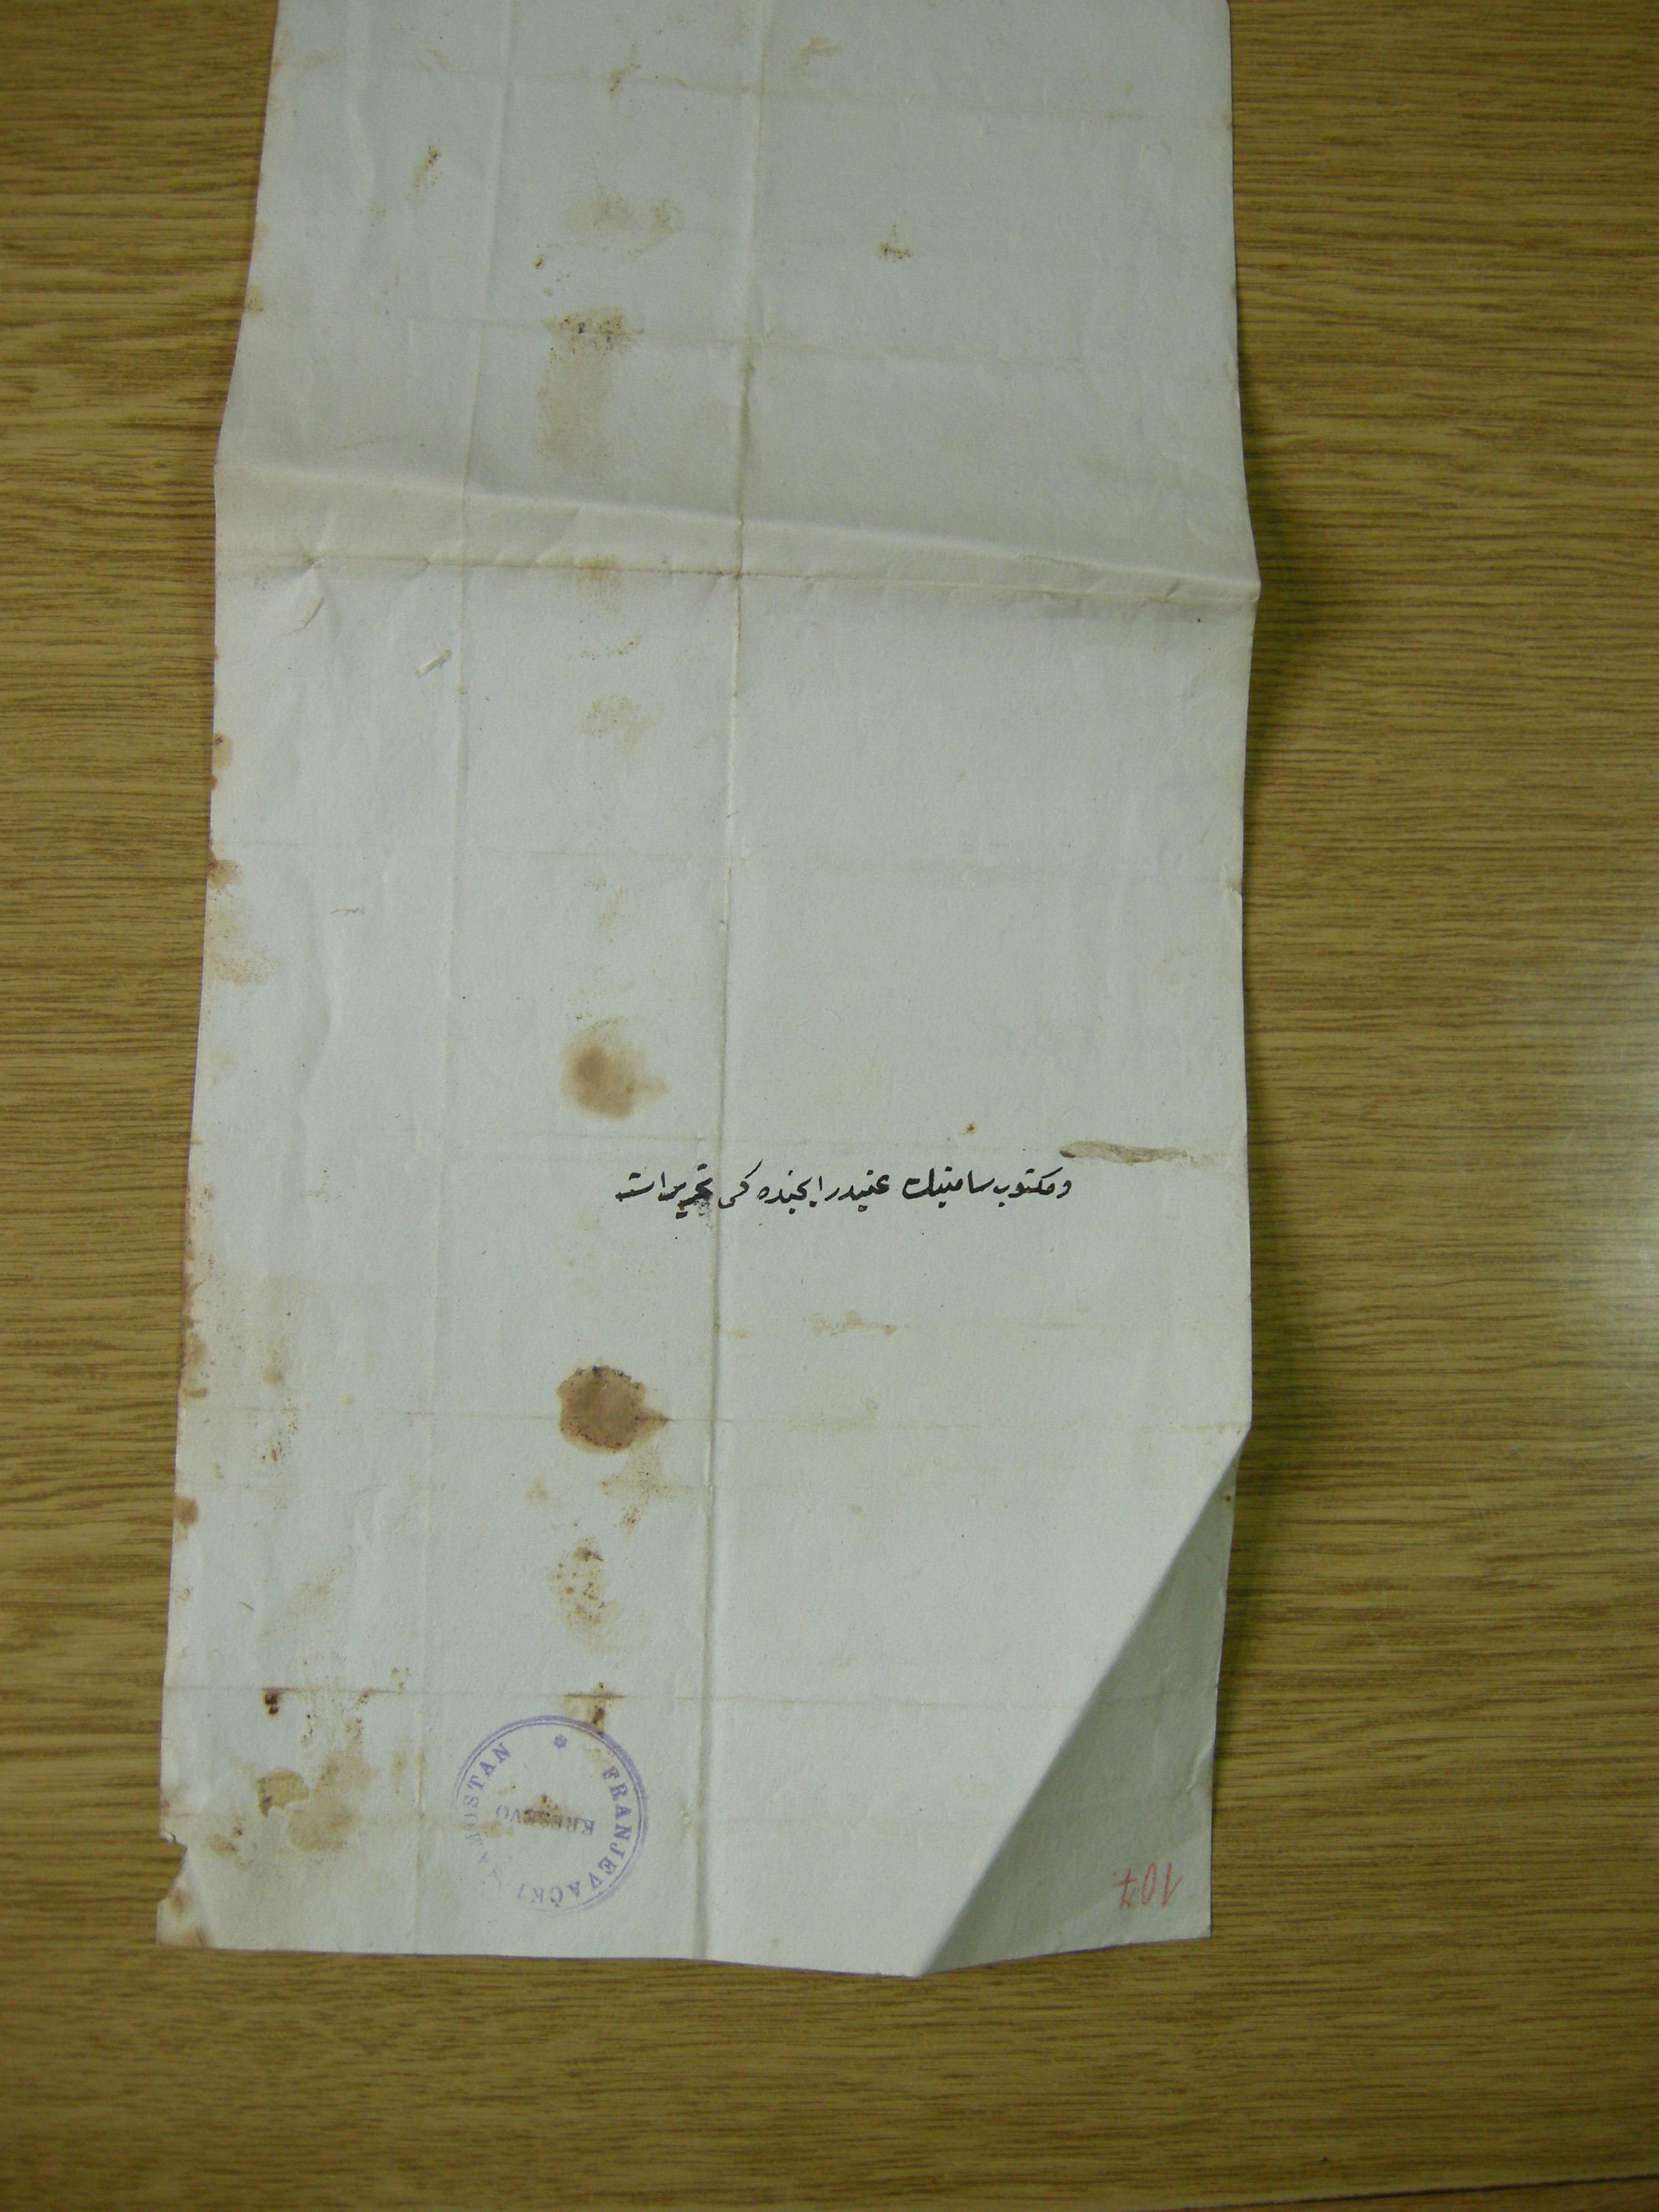 و مكتوب سامينك عينيدر ايچنده كى تحريرات
FRANJEVAČKI SAMOSTAN
KREŠEVO
107